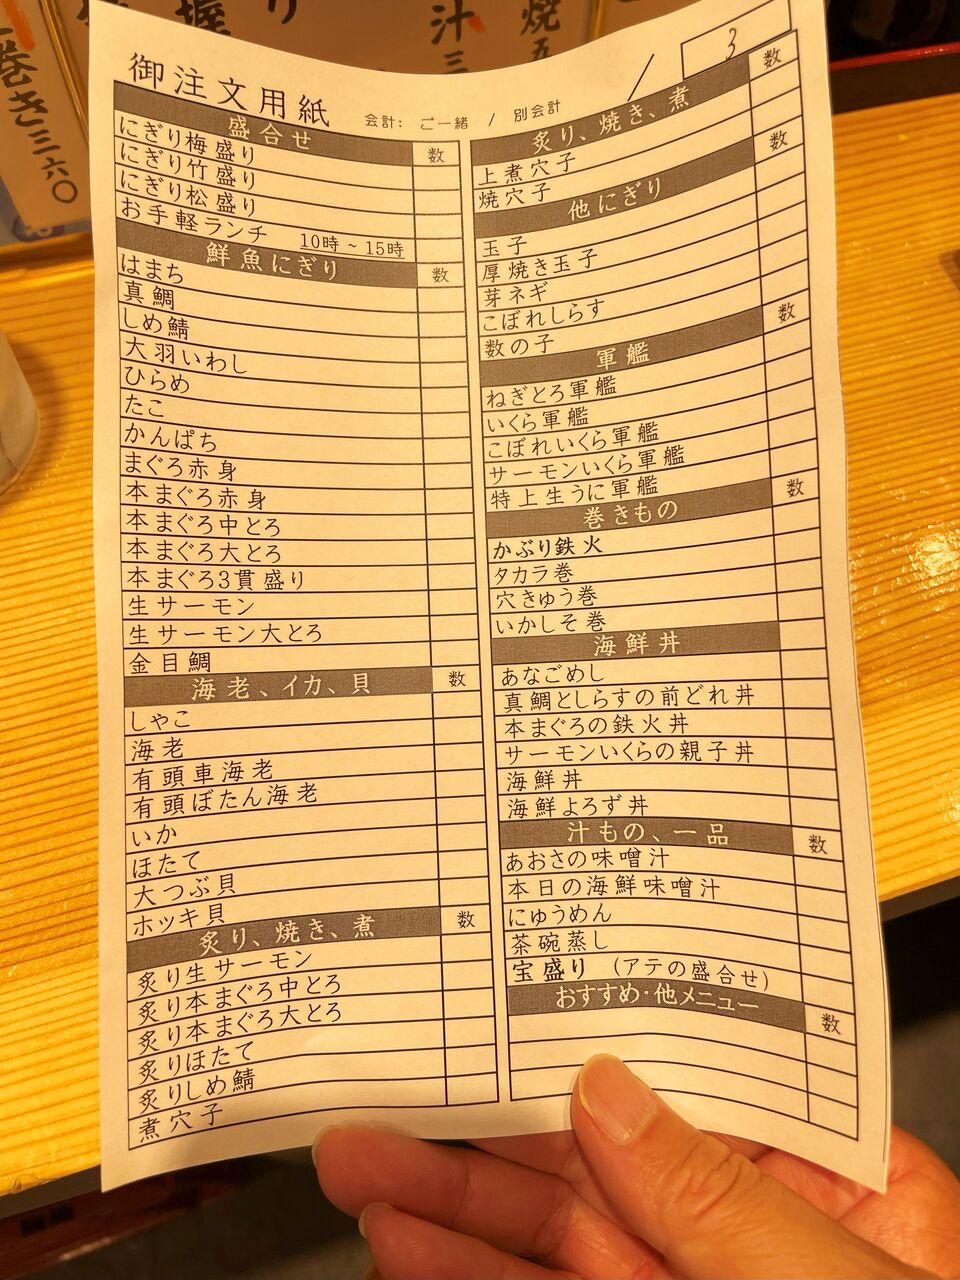 巻き三六〇
握
り
汁三
焼五
御注文用紙
会計: ご一緒 / 別会計
/
3
盛合せ 数
にぎり梅盛り
にぎり竹盛り
にぎり松盛り
お手軽ランチ 10時~15時
鮮魚にぎり 数
はまち
真鯛
しめ鯖
大羽いわし
ひらめ
たこ
かんぱち
まぐろ赤身
本まぐろ赤身
本まぐろ中とろ
本まぐろ大とろ
本まぐろ3貫盛り
生サーモン
生サーモン大とろ
金目鯛
海老、イカ、貝 数
しゃこ
海老
有頭車海老
有頭ぼたん海老
いか
ほたて
大つぶ貝
ホッキ貝
炙り、焼き、煮 数
炙り生サーモン
炙り本まぐろ中とろ
炙り本まぐろ大とろ
炙りほたて
炙りしめ鯖
煮穴子
炙り、焼き、煮 数
上煮穴子
焼穴子
他にぎり 数
玉子
厚焼き玉子
芽ネギ
こぼれしらす
数の子
軍艦 数
ねぎとろ軍艦
いくら軍艦
こぼれいくら軍艦
サーモンいくら軍艦
特上生うに軍艦
巻きもの 数
かぶり鉄火
タカラ巻
穴きゅう巻
いかしそ巻
海鮮丼
あなごめし
真鯛としらすの前どれ丼
本まぐろの鉄火丼
サーモンいくらの親子丼
海鮮丼
海鮮よろず丼
汁もの、一品 数
あおさの味噌汁
本日の海鮮味噌汁
にゅうめん
茶碗蒸し
宝盛り (アテの盛合せ)
おすすめ・他メニュー 数